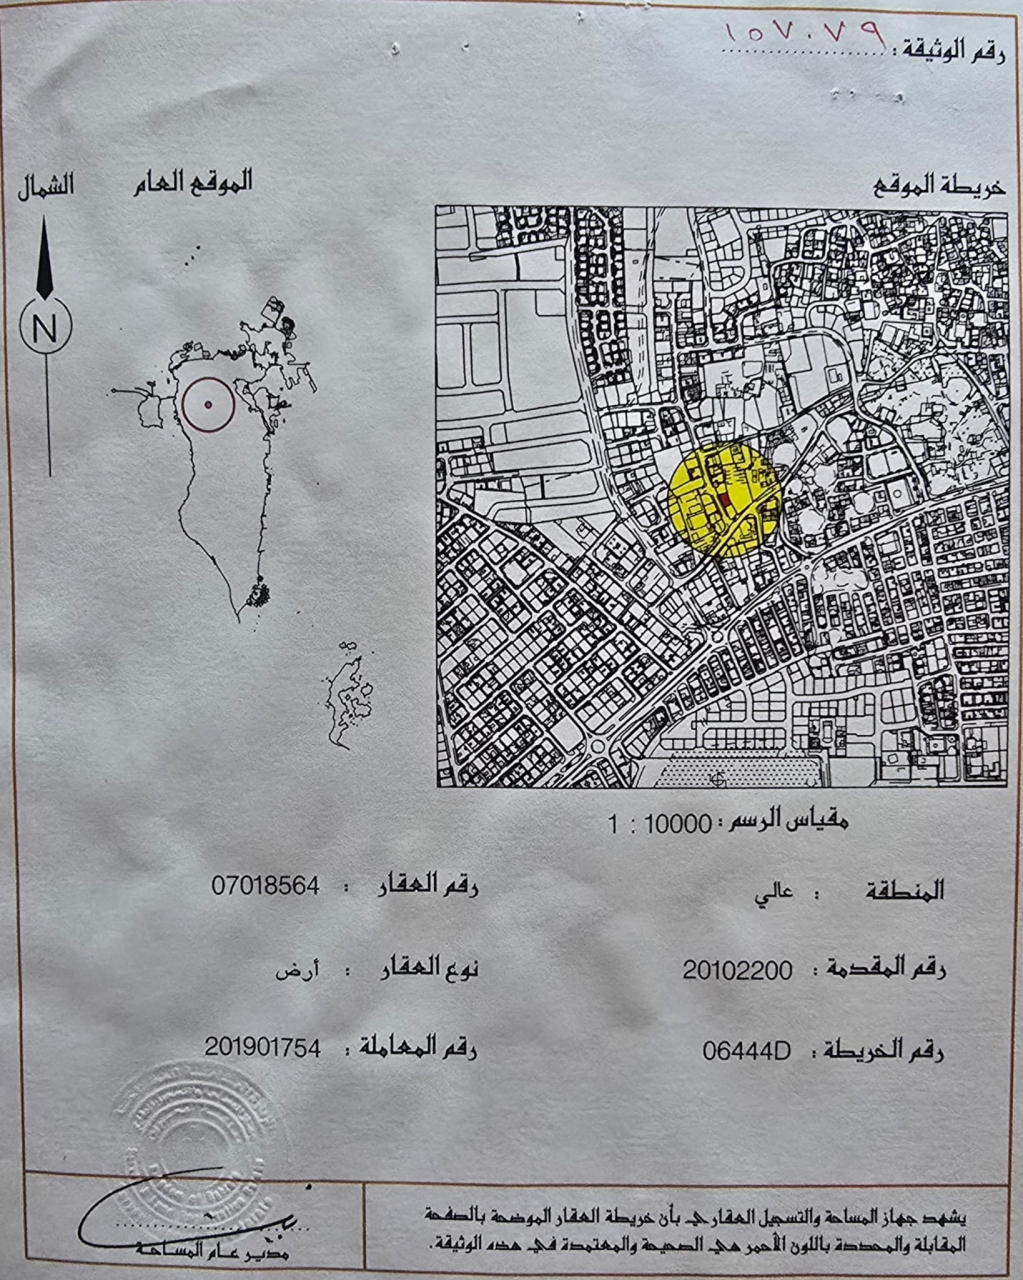 رقم الوثيقة : ١٥٧٠٧٩
خريطة الموقع
الموقع العام
الشمال
N
مقياس الرسم : 10000 : 1
المنطقة : عالي
رقم العقار : 07018564
رقم المقدمة : 20102200
نوع العقار : أرض
رقم الخريطة : 06444D
رقم المعاملة : 201901754
يشهد جهاز المساحة والتسجيل العقاري بأن خريطة العقار الموضحة بالصفحة
المقابلة والمحددة باللون الأحمر هي الصحيحة والمعتمدة في هذه الوثيقة.
مدير عام المساحة